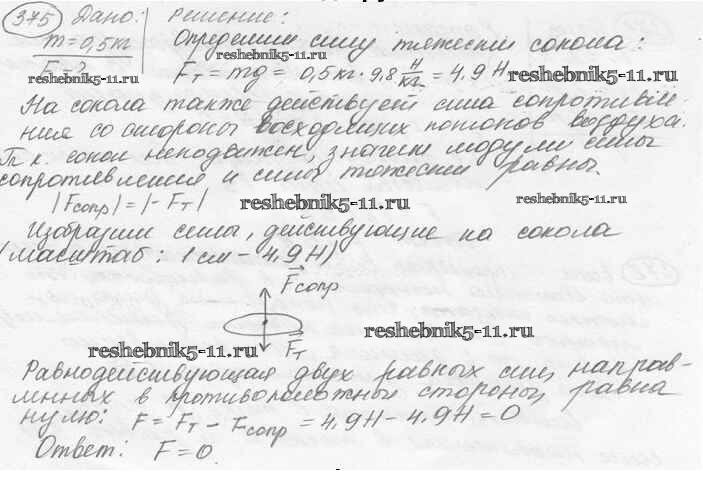 375 Дано: Решение:
m = 0,5 кг Определим силу тяжести сокола:
reshebnik5-11.ru
F - ? Fт = mg = 0,5 кг · 9,8 Н/кг = 4,9 Н reshebnik5-11.ru
reshebnik5-11.ru
На сокола также действует сила сопротивле-
ния со стороны восходящих потоков воздуха.
Т.к. сокол неподвижен, значит модули силы
сопротивления и силы тяжести равны.
|Fсопр| = |-Fт| reshebnik5-11.ru reshebnik5-11.ru
Изобразим силы, действующие на сокола
(масштаб: 1 см - 4,9 Н)
Fсопр
reshebnik5-11.ru
reshebnik5-11.ru Fт
Равнодействующая двух равных сил, направ-
лнных в противоположны стороны, равна
нулю: F = Fт - Fсопр = 4,9Н - 4,9Н = 0
Ответ: F = 0.